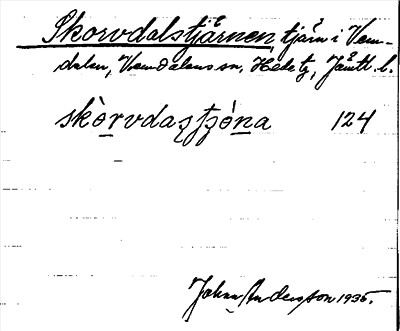 Skorvdalstjärnen, tjärn i Vem-
dalen, Vemdalens sn, Hede tg, Jämtl. l.
skòrvdastjóna 124
Johan Andersson 1935.